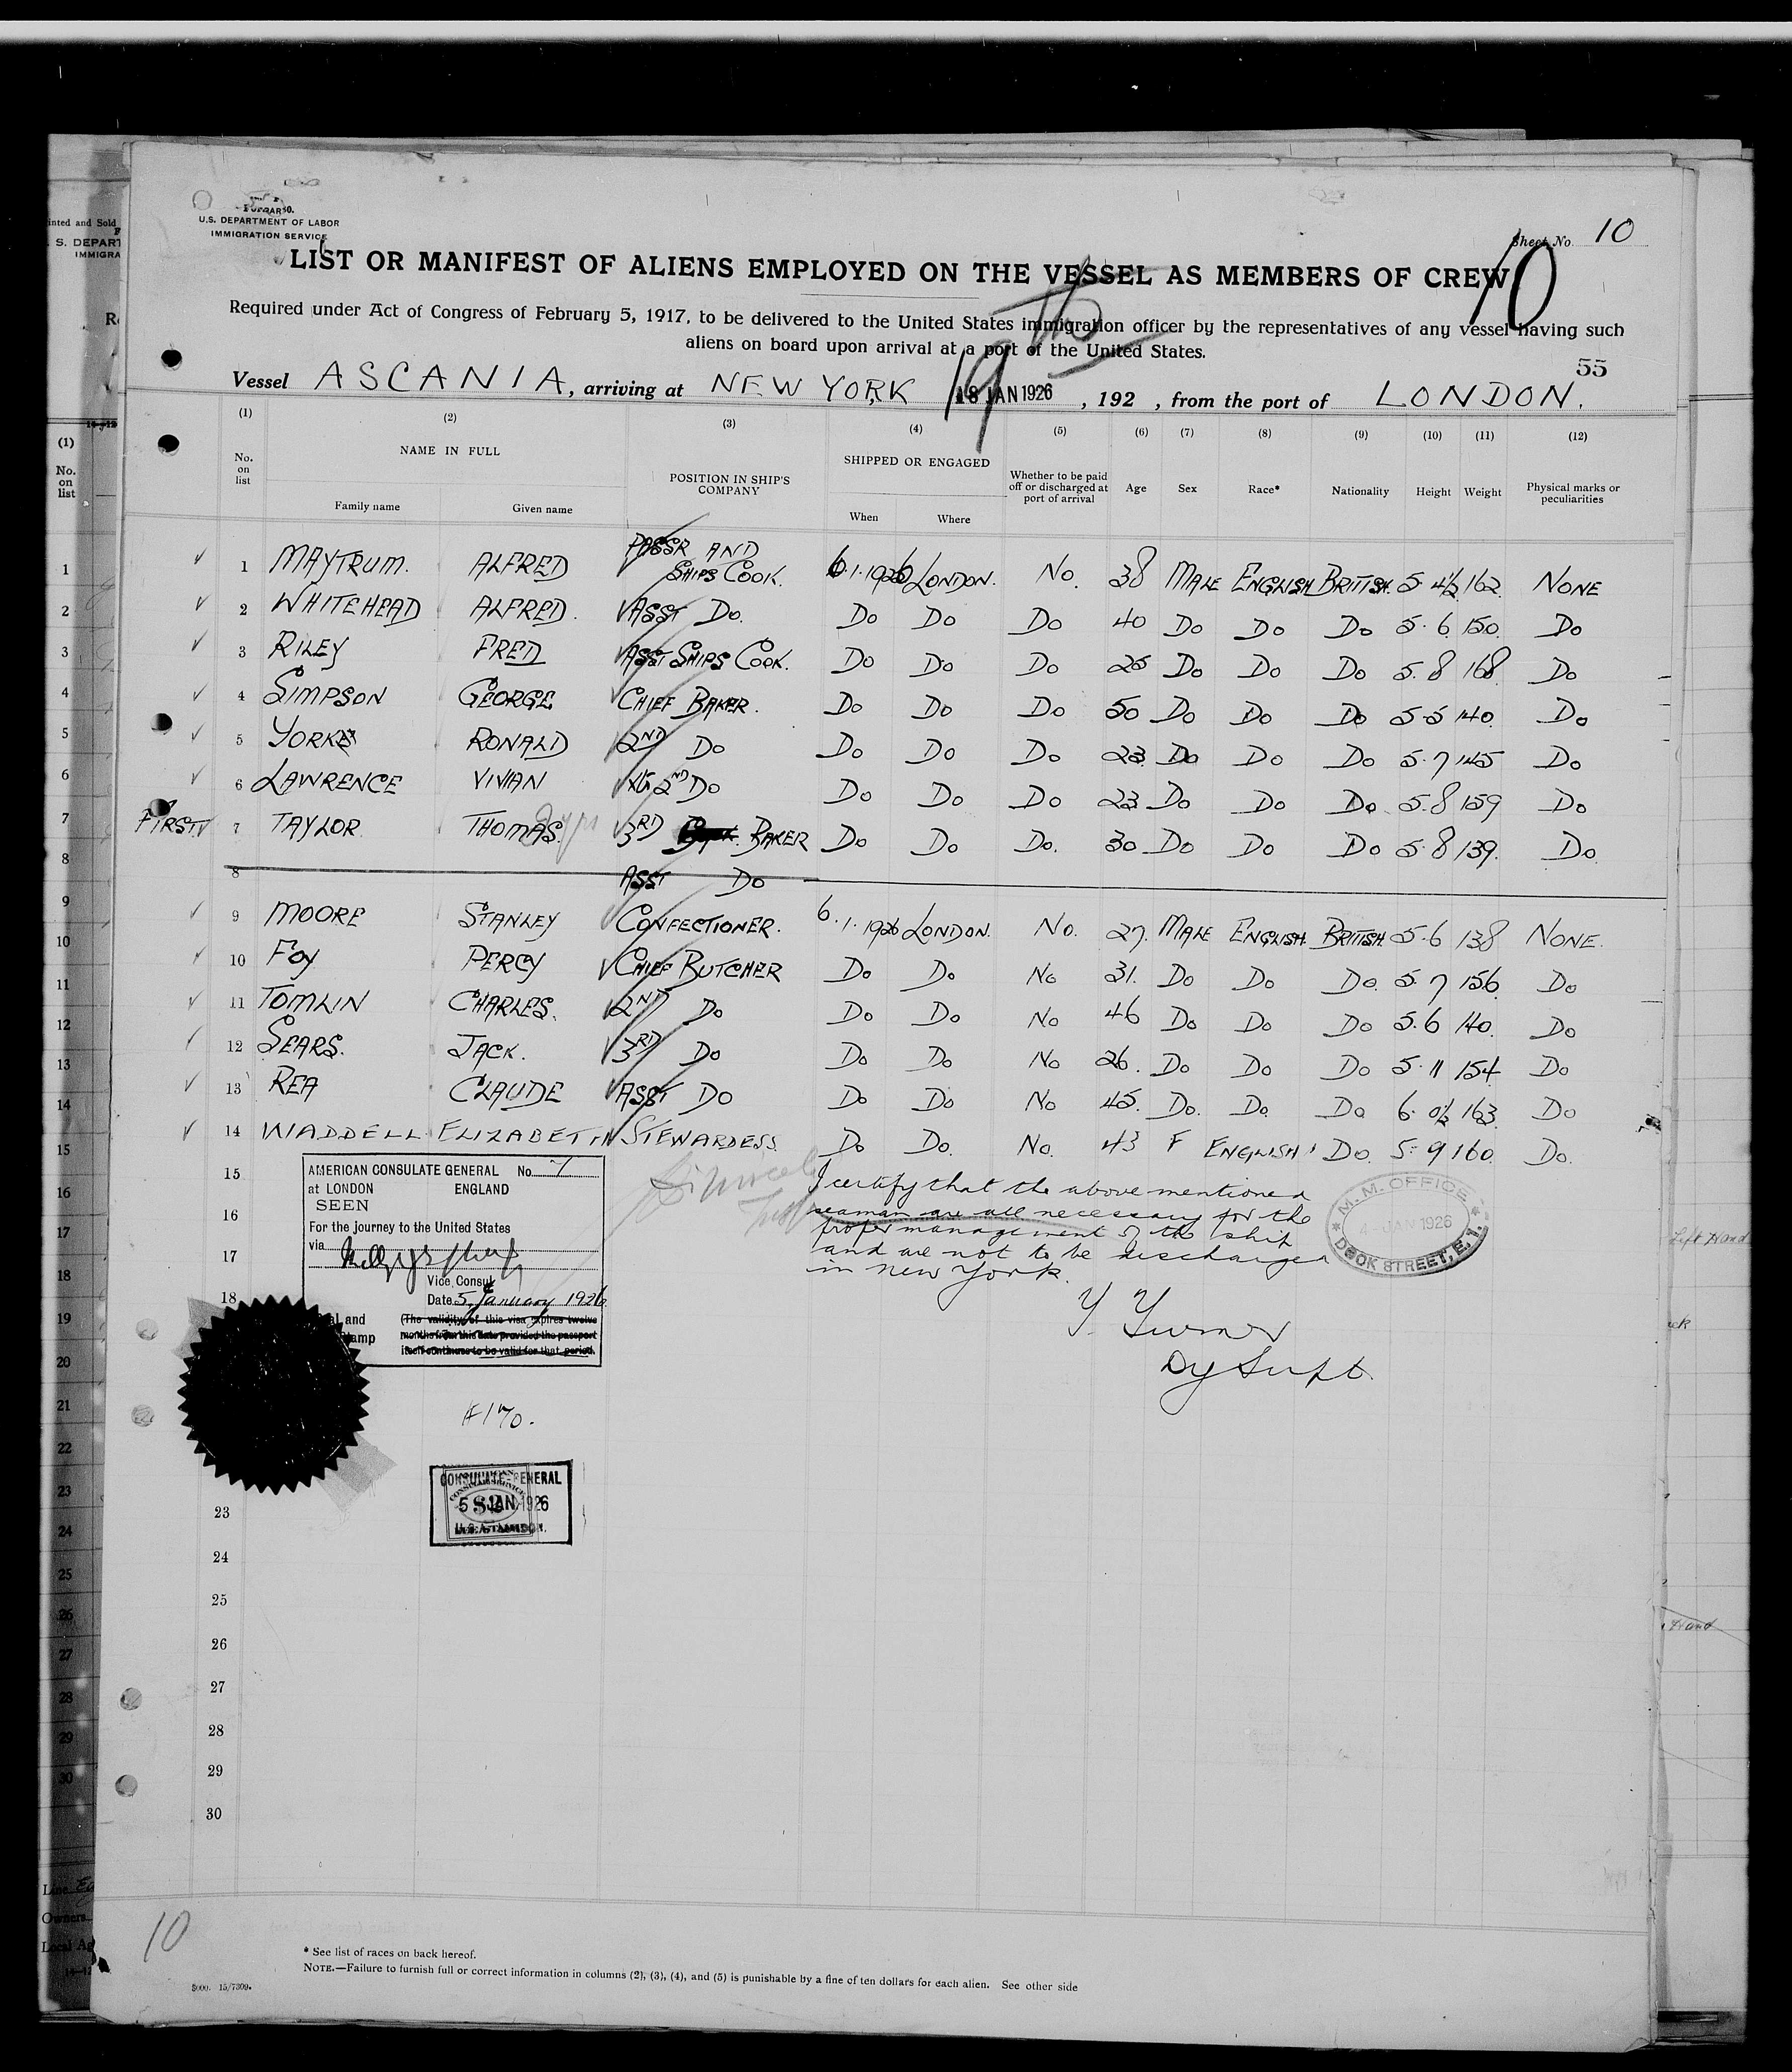 U.S. DEPARTMENT OF LABOR
IMMIGRATION SERVICE
Sheet No. 10
10
LIST OR MANIFEST OF ALIENS EMPLOYED ON THE VESSEL AS MEMBERS OF CREW
Required under Act of Congress of February 5, 1917, to be delivered to the United States immigration officer by the representatives of any vessel having such
aliens on board upon arrival at a port of the United States.
19th
55
Vessel ASCANIA, arriving at NEW YORK 18 JAN 1926, 192 , from the port of LONDON.
(1) (2) (3) (4) (5) (6) (7) (8) (9) (10) (11) (12)
No. on list NAME IN FULL Family name Given name POSITION IN SHIP'S COMPANY SHIPPED OR ENGAGED When Where Whether to be paid off or discharged at port of arrival Age Sex Race* Nationality Height Weight Physical marks or peculiarities
1 MAYTRUM. ALFRED PASSR AND SHIPS COOK. 6.1.1926 LONDON. No. 38 MALE ENGLISH BRITISH. 5.4½ 162. NONE
2 WHITEHEAD ALFRED. ASST DO. DO DO DO 40 DO DO DO 5.6. 150. DO
3 RILEY FRED ASST SHIPS COOK. DO DO DO 25 DO DO DO 5.8 168 DO
4 SIMPSON GEORGE CHIEF BAKER. DO DO DO 50 DO DO DO 5-5 140. DO
5 YORKE RONALD 2ND DO DO DO DO 23 DO DO DO 5.7 145 DO
6 LAWRENCE VIVIAN 2ND DO DO DO DO 23 DO DO DO 5.8 159 DO
FIRST. 7 TAYLOR THOMAS. 3RD BAKER DO DO DO. 30 DO DO DO 5.8 139. DO.
8 ASST DO
9 MOORE STANLEY CONFECTIONER. 6.1.1926 LONDON. No. 27. MALE ENGLISH BRITISH 5.6 138 NONE.
10 FOY PERCY CHIEF BUTCHER DO DO No 31. DO DO DO. 5.7 156. DO
11 TOMLIN CHARLES. 2ND DO DO DO No 46 DO DO DO 5.6 140. DO
12 SEARS. JACK. 3RD DO DO DO No 26. DO DO DO 5.11 154 DO
13 REA CLAUDE ASST DO DO DO No 45. DO. DO. DO 6.0½ 163. DO
14 WADDELL ELIZABETH STEWARDESS. DO DO. No. 43 F ENGLISH DO. 5=9 160. DO.
15
16
17
18
AMERICAN CONSULATE GENERAL No. 7
at LONDON ENGLAND
SEEN
For the journey to the United States
via
Vice Consul
Date 5 January 1926
(The validity of this visa expires twelve
months from this date provided the passport
itself continues to be valid for that period.
I certify that the above mentioned
seaman are all necessary for the
proper management of the ship
and are not to be discharged
in New York.
Y. Turner
Dy Supt.
M. M. OFFICE
4 JAN 1926
DOCK STREET, E. 1.
#170.
CONSULATE-GENERAL
5 JAN 1926
23
24
25
26
27
28
29
30
10
* See list of races on back hereof.
NOTE.—Failure to furnish full or correct information in columns (2), (3), (4), and (5) is punishable by a fine of ten dollars for each alien. See other side
5000. 15/7309.